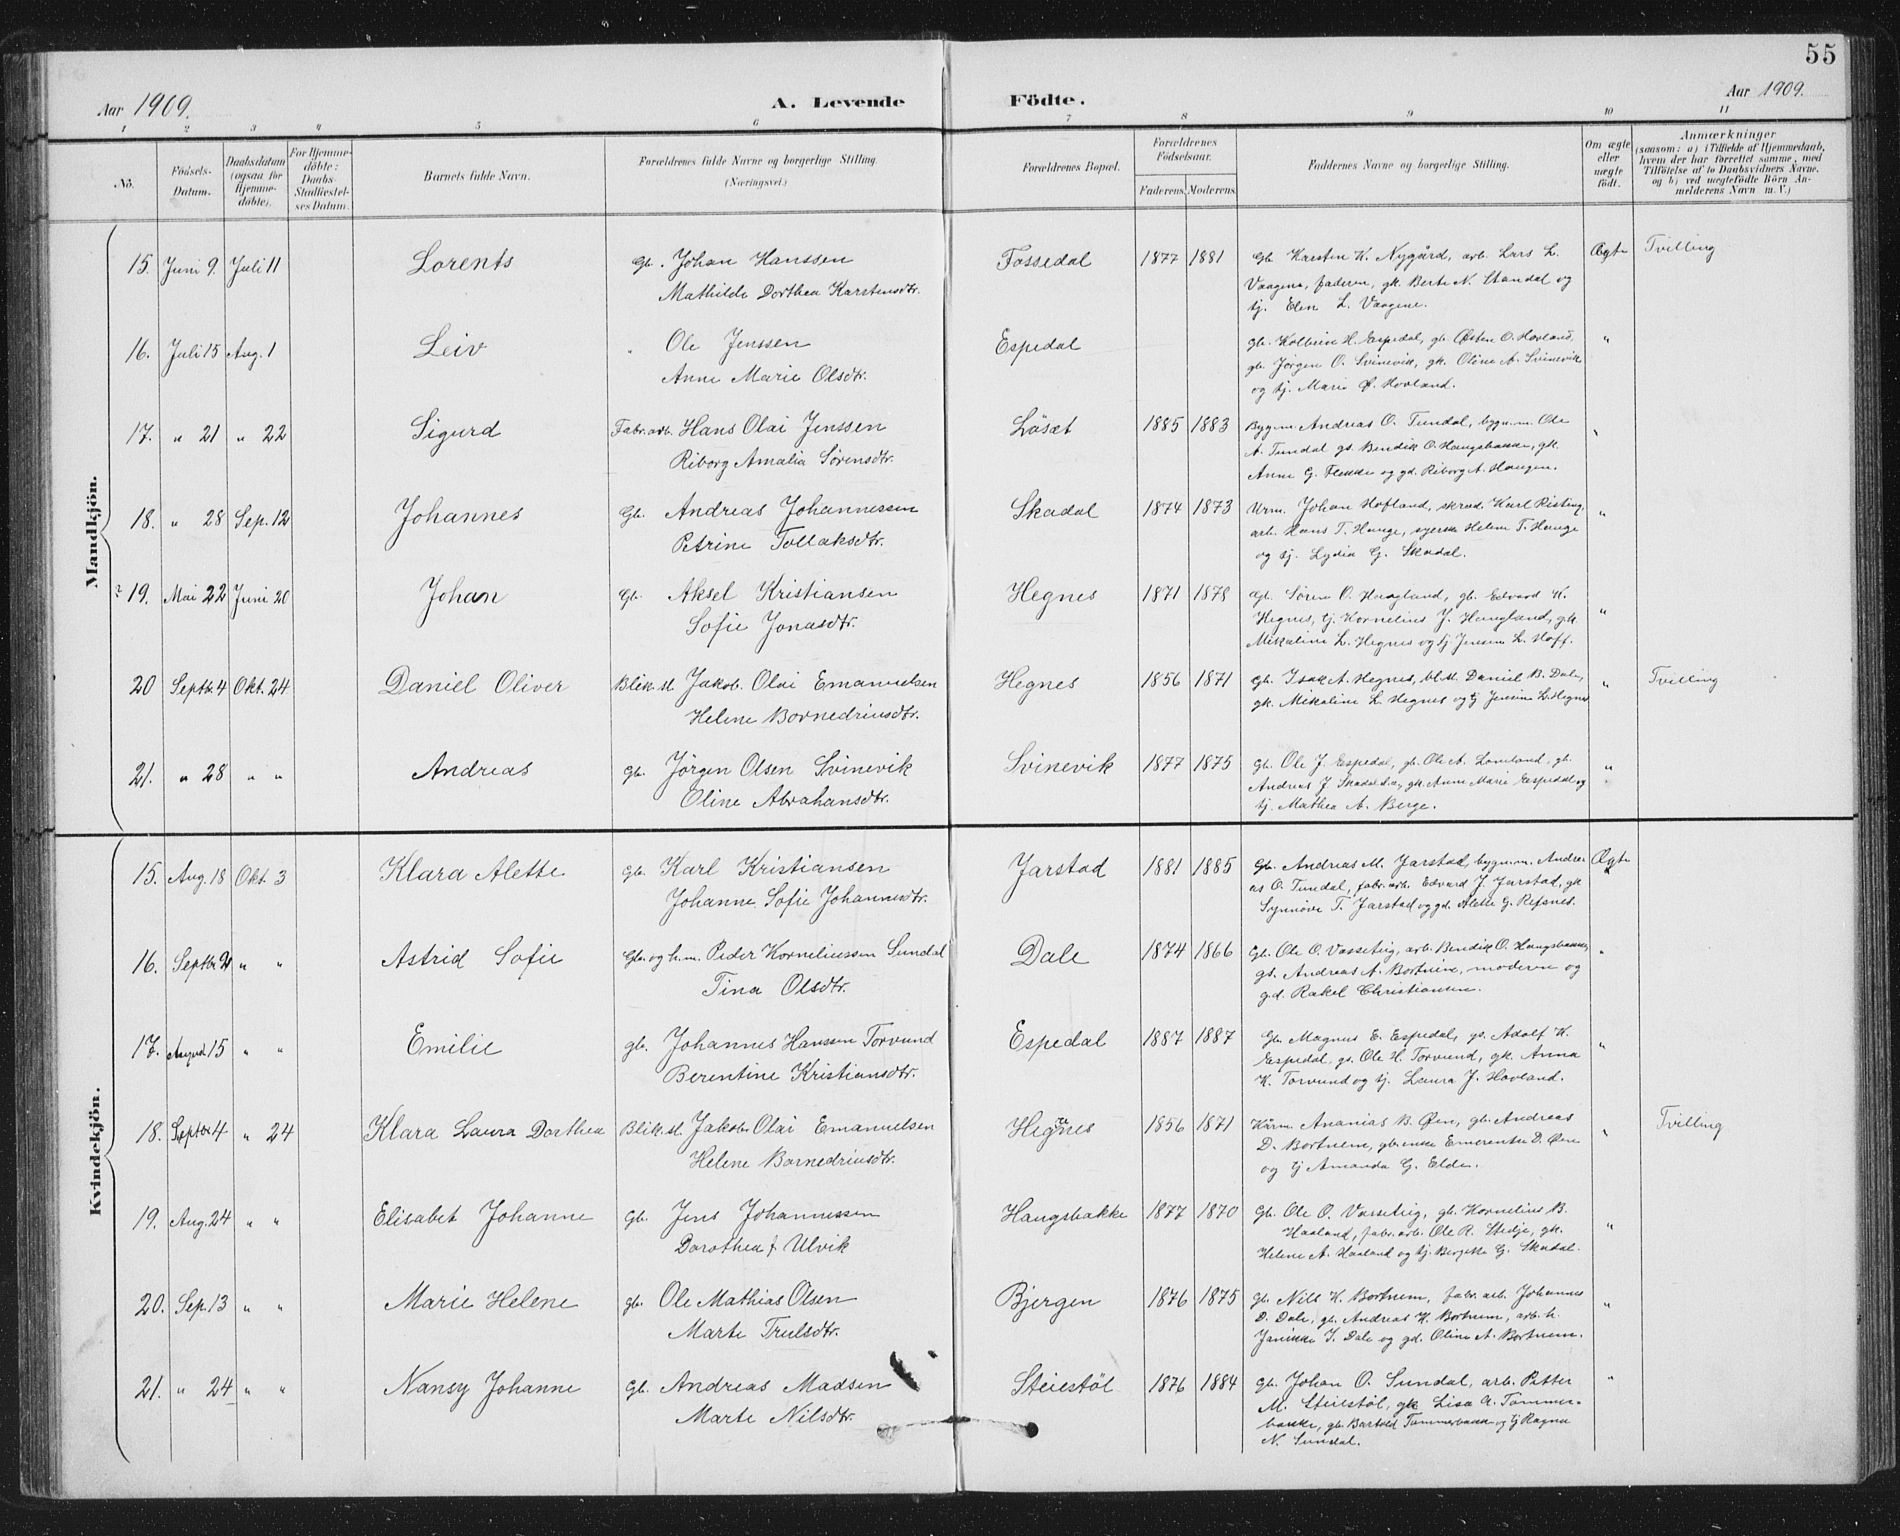 55
Aar 1909. A. Levende Födte. Aar 1909.
1 2 3 4 5 6 7 8 9 10 11
No. Födsels-Datum. Daabsdatum (ogsaa for Hjemme-döbte). For Hjemme-döbte: Daabs-Stadfæstel-ses Datum. Barnets fulde Navn. Forældrenes fulde Navne og borgerlige Stilling. (Næringsvei.) Forældrenes Bopæl. Forældrenes Födselsaar. Faderens. Moderens. Faddernes Navne og borgerlige Stilling. Om ægte eller uægte födt. Anmærkninger (saasom: a) i Tilfælde af Hjemmedaab, hvem der har forrettet samme, med Tilföielse af to Daabsvidners Navne, og b) ved uægtefödte Börn An-melderens Navn m. V.)
Mandkjön.
15. Juni 9. Juli 11 Lorents Gb. Johan Hanssen Fossedal 1877 1881 Gb. Karsten K. Nygård, arb. Lars L. Ægte Tvilling
Mathilde Dorthea Karstensdtr. Vaagene, faderen, gk. Berte N. Standal og
tj. Elen L. Vaagene.
16. Juli 15 Aug. 1 Leiv " Ole Jenssen Espedal gb. Kolbein H. Espedal, gb Østen O. Hovland, "
Anne Marie Olsdtr. gb. Jörgen O. Svinevik, gk. Oline A. Svinevik
og tj. Marie Ø. Hovland.
17. " 21 " 22 Sigurd Fabr.arb. Hans Olai Jenssen Löset 1885 1883 Bygm. Andreas O. Tundal, bygn.m. Ole "
Riborg Amalia Sörensdtr. A. Tundal gs. Bendik O. Haugsbakke, gk.
Anne G. Flekke og gd. Riborg A. Haugen.
18. " 28 Sep. 12 Johannes Gb. Andreas Johannessen Skadal 1874 1873 Urm. Johan Hofland, skræd. Karl Risting, "
Petrine Tollaksdtr. arb. Hans T. Hauge, syerske Helene T. Hauge
og tj. Lydia G. Skadal.
? 19. Mai 22 Juni 20 Johan Gb. Aksel Kristiansen Hegnes 1871 1878 Gb. Sören O. Haugland, gb. Edvard K. "
Sofie Jonasdtr. Hegnes, tj. Kornelius J. Haugland, gk.
Mikaline L. Hegnes og tj. Jensine L. Hoff.
20 Septbr. 4 Okt. 24 Daniel Oliver Blik.sl. Jakob Olai Emanuelsen Hegnes 1856 1871 Gb. Isak A. Hegnes, bl.sl. Daniel B. Dale, " Tvilling
Helene Bornedriusdtr. gk. Mikaline L. Hegnes og tj Jensine L. Hegnes
21. " 28 " " Andreas Gb. Jörgen Olsen Svinevik Svinevik 1877 1875 Gb. Ole J. Espedal, gb. Ole A. Lomeland, gb. "
Oline Abrahamsdtr. Andreas J. Skadal, gk. Anne Marie Espedal og
tj. Mathea A. Berge.
Kvindekjön.
15. Aug. 18 Okt. 3 Klara Alette gb. Karl Kristiansen Jarstad 1881 1885 Gb. Andreas M. Jarstad, bygn.m. Andre- Ægte
Johanne Sofie Johannesdtr. as O. Tundal, fabr.arb. Edvard J. Jarstad, gk
Synnöve T. Jarstad og gd. Alette G. Refsnes.
16. Septbr. 2 " " Astrid Sofie Gb. og h.m. Peder Korneliussen Sundal Dale 1874 1866 Gb. Ole O. Vassetrig, arb. Bendik O. Haugsbakke, "
Tina Olsdtr. gs. Andreas A. Bortnem, moderen og
gd. Rakel Christiansen.
17. August 15 " " Emilie gb. Johannes Hanssen Torvund Espedal 1887 1887 Gb. Magnus E. Espedal, gs. Adolf K. "
Berentine Kristiansdtr. Espedal, gs. Ole H. Torvund, gk. Anna
K. Torvund og tj. Laura J. Hovland.
18. Septbr 4 " 24 Klara Laura Dorthea Blik.sl. Jakob Olai Emanuelsen Hegnes 1856 1871 Kirm. Ananias B. Øen, gb. Andreas " Tvilling
Helene Bornedriusdtr. D. Bortnem, gbr.enke Emerentse D. Øen
og tj Amanda G. Elde.
19. Aug. 24 " " Elisabet Johanne Gb. Jens Johannessen Haugsbakke 1877 1870 Gb. Ole O. Vassetrig, gb. Kornelius B. "
Dorothea J Ulvik Haaland, fabr.arb. Ole R. Stedje, gk.
Helene A. Haaland og tj. Bergitte G. Skadal.
20. Sep. 13 " " Marie Helene gb. Ole Mathias Olsen Bjergen 1876 1875 Gb. Nils H. Bortnem, fabr.arb. Johannes "
Marte Trulsdtr. D. Dale, gb. Andreas H. Bortnem, arb. h.
Janikke I. Dale og gd. Oline A. Bortnem.
21. " 24 " " Nansy Johanne Gb. Andreas Madsen Steiestöl 1876 1884 Gb. Johan O. Sundal, arb. Petter "
Marte Nilsdtr. M. Steiestöl, gk Lisa A. Tömmer-
bakke, gb. Bartold Tömmerbakke og tj Ragna
N. Sundal.